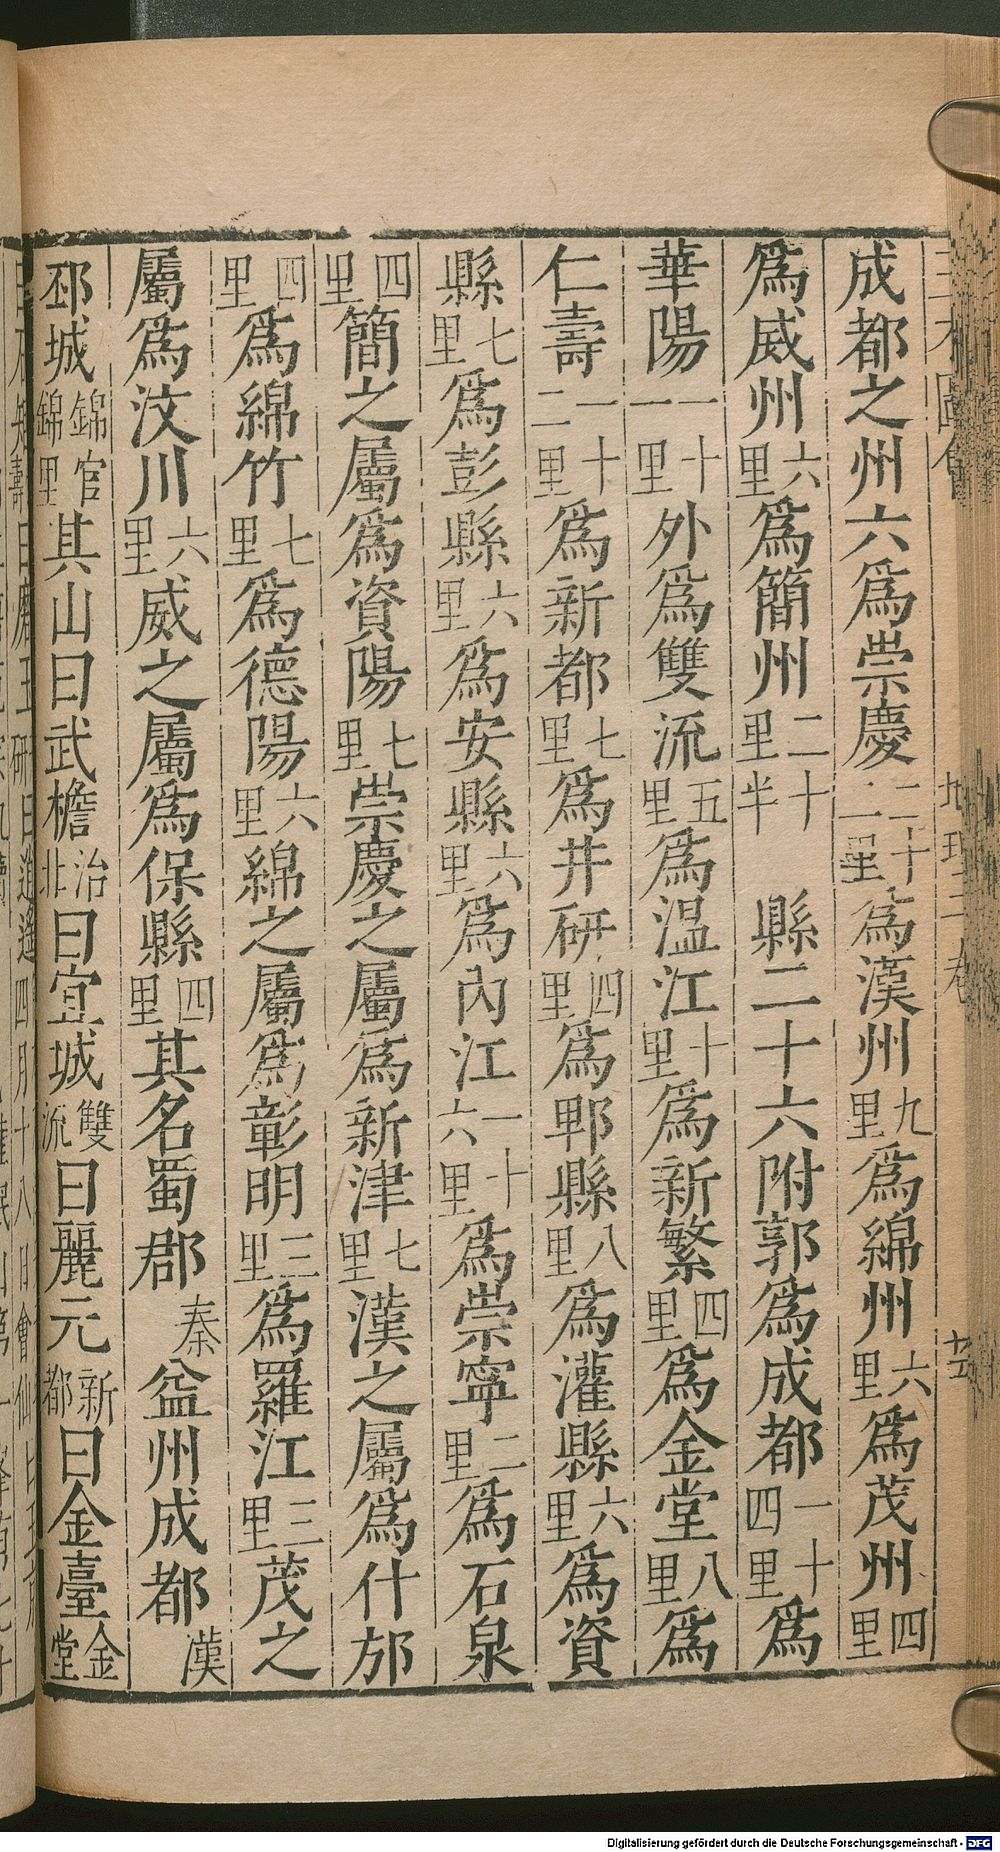 成都之州六爲崇慶二十二里爲漢州九里爲綿州六里爲茂州四里
爲威州六里爲簡州二十二里半縣二十六附郭爲成都一十四里爲
華陽一十一里外爲雙流五里爲温江十里爲新繁四里爲金堂八里爲
仁壽一十二里爲新都七里爲井研四里爲郫縣八里爲灌縣六里爲資
縣七里爲彭縣六里爲安縣六里爲內江一十六里爲崇寧二里爲石泉
四里簡之屬爲資陽七里崇慶之屬爲新津七里漢之屬爲什邡
四里爲綿竹七里爲德陽六里綿之屬爲彰明三里爲羅江三里茂之
屬爲汶川六里威之屬爲保縣四里其名蜀郡秦益州成都漢
邳城錦官錦里其山曰武檐治北曰宜城雙流曰麗元新都曰金臺金堂
地理二卷
Digitalisierung gefördert durch die Deutsche Forschungsgemeinschaft - DFG